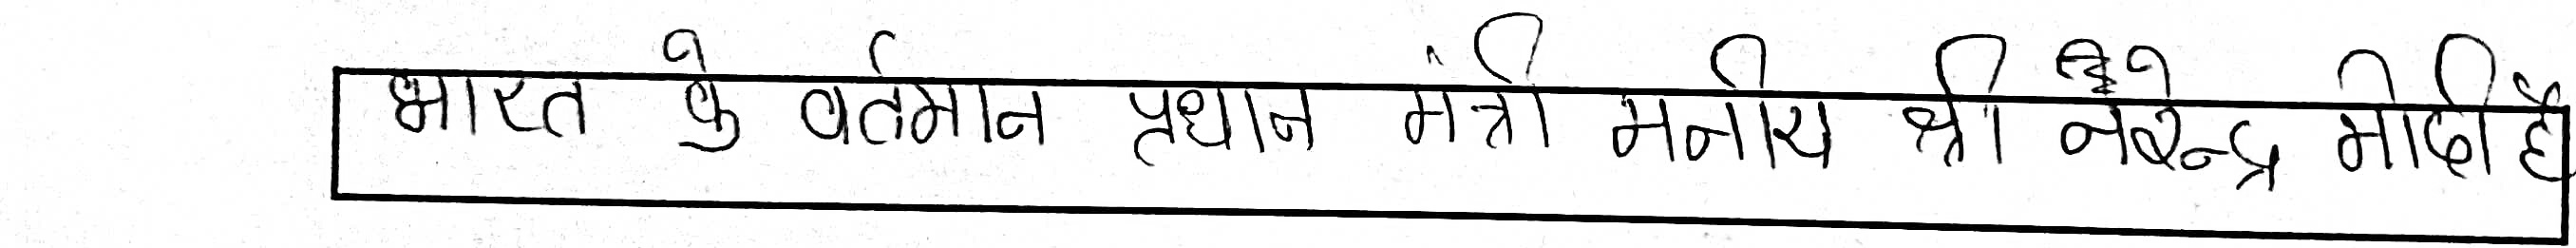 भारत के वर्तमान प्रधान मंत्री मनीय श्री नरेन्द्र मोदी है